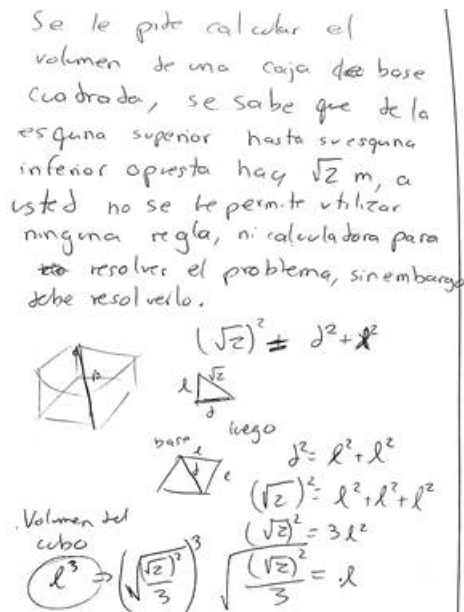 Se le pide calcular el
volumen de una caja de base
cuadrada, se sabe que de la
esquina superior hasta su esquina
inferior opuesta hay √2 m, a
usted no se le permite utilizar
ninguna regla, ni calculadora para
resolver el problema, sin embargo
debe resolverlo.
(√2)² = d² + l²
l √2
d
luego
base l
d l
d² = l² + l²
(√2)² = l² + l² + l²
Volumen del
cubo
(√2)² = 3l²
l³ ⇒ (√((√2)²/3))³ √((√2)²/3) = l